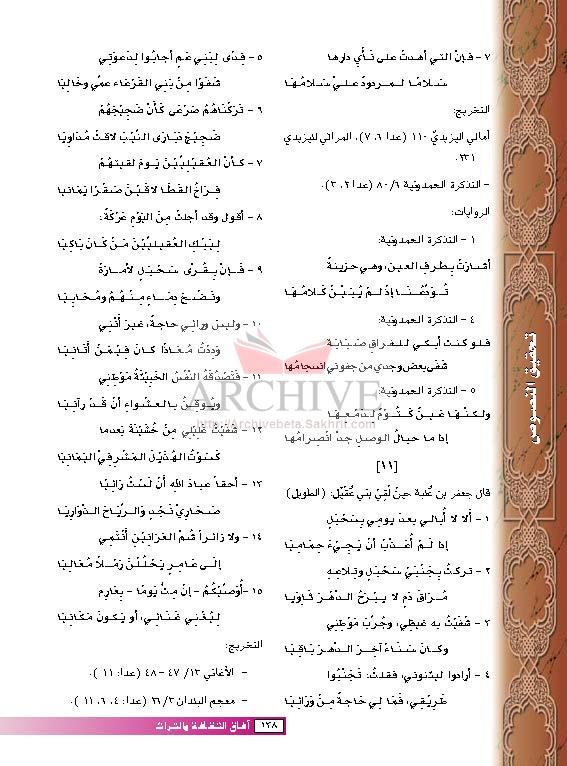 ٧ - فإنّ التي أهدتْ على نَأْيِ دارها
سَلامًا لمردودٌ عليَّ سَلامُهَا
التخريج:
أمالي اليزيديّ ١١٠ (عدا ٦، ٧)، المراثي لليزيدي
٢٣١.
- التذكرة الحمدونية ٨٠/٦ (عدا ٢، ٣).
الروايات:
١ - التذكرة الحمدونية:
أشارَتْ بطرفِ العينِ، وهي حزينةٌ
تُوَدِّعُنَا إذْ لمْ يَبِنْ كَلامُهَا
٤ - التذكرة الحمدونية:
فلو كنت أبكي للفراقِ صَبَابَةً
شفى بعض وجدي من جفوني انسجامُها
٥ - التذكرة الحمدونية:
ولكنّها عَينٌ كَتُومٌ لدَمْعِهَا
إذا ما حبالُ الوصلِ جدّ انصرامُها
[١١]
قال جعفر بن عُلبة حينَ لَقِيَ بني عُقَيْل: (الطويل)
١ - ألا لا أُبالي بعدَ يومي بِسَحْبَلٍ
إذا لَمْ أُعَذَّبْ أنْ يَجِيْءَ حِمَامِيَا
٢ - تركتُ بِجَنْبَيْ سَحْبَلٍ وتِلاعِهِ
مُرَاقَ دَمٍ لا يَبْرَحُ الدَّهْرَ ثَاوِيَا
٣ - شَفَيْتُ بهِ غيظي، وجُرِّبَ مَوْطِنِي
وكانَ سَنَاءً آخِرَ الدَّهْرِ بَاقِيَا
٤ - أرادوا ليثنوني، فقلتُ: تَجَنَّبُوا
طَرِيْقِي، فَمَا لي حَاجَةٌ مِنْ وَرَائِيَا
٥ - فِدًى لِبَنِي عَمٍ أجابُوا لِدَعوَتِي
شَفَوْا مِنْ بَنِي القَرْعَاءِ عمِّي وخَالِيَا
٦ - تَرَكْنَاهُمُ صَرْعَى كأنّ ضَجِيْجَهُمْ
ضَجِيجُ دَبَارَى النِّيْبِ لاقتْ مُدَاوِيَا
٧ - كأنّ العُقَيْلِيِّيْنَ يَومَ لَقيتهُمْ
فِرَاخُ القَطَا لاقَيْنَ صَقْرًا يَمَانِيَا
٨ - أقولُ وقد أجلتْ مِنَ اليَوْمِ عَرْكَةٌ:
لِيَبْكِ العُقَيْلِيِّيْنَ مَنْ كَانَ بَاكِيَا
٩ - فَإِنَّ بِقُرَّى سَحْبَلٍ لأَمَارَةً
ونَضْحَ دِمَاءٍ مِنْهُمُ ومُحَابِيَا
١٠ - وليسَ ورائي حاجةٌ، غيرَ أنّنِي
وَدِدْتُ مُعَاذًا كانَ فِيْمَنْ أتَانِيَا
١١ - فَتَصْدُقَهُ النَّفْسُ الخَبِيْثَةُ مَوْطِنِي
ويُوقِنَ بالعشواءِ أنْ قَدْ رآنِيَا
١٢ - شَفَيْتُ غَلِيْلِي مِنْ خُشَيْنَةَ بَعدما
كَسَوْتُ الهُذَيْلَ المَشْرَفِيَّ اليَمَانِيَا
١٣ - أحقاً عبادَ اللهِ أنْ لَسْتُ رَائِيًا
صَحَارِيَ نَجْدٍ والرِّياحَ الذَّوَارِيَا
١٤ - ولا زائراً شُمَّ العَرَانِيْنِ أَنْتَمِي
إلى عَامِرٍ يَحْلُلْنَ رَمْلاً مُعَالِيَا
١٥ - أُوْصِيْكُمُ - إنْ مِتُّ يَوْمًا - بِعَارِمٍ
لِيُغْنِي غَنَائِي، أو يَكُونَ مَكَانِيَا
التخريج:
- الأغاني ١٣/ ٤٧ - ٤٨ (عدا: ١١).
- معجم البلدان ٢٦/٣ (عدا: ٤، ٦، ١١).
تحقيق النصوص
ARCHIVE
http://Archivebeta.Sakhrit.com
١٣٨ آفاق الثقافة والتراث